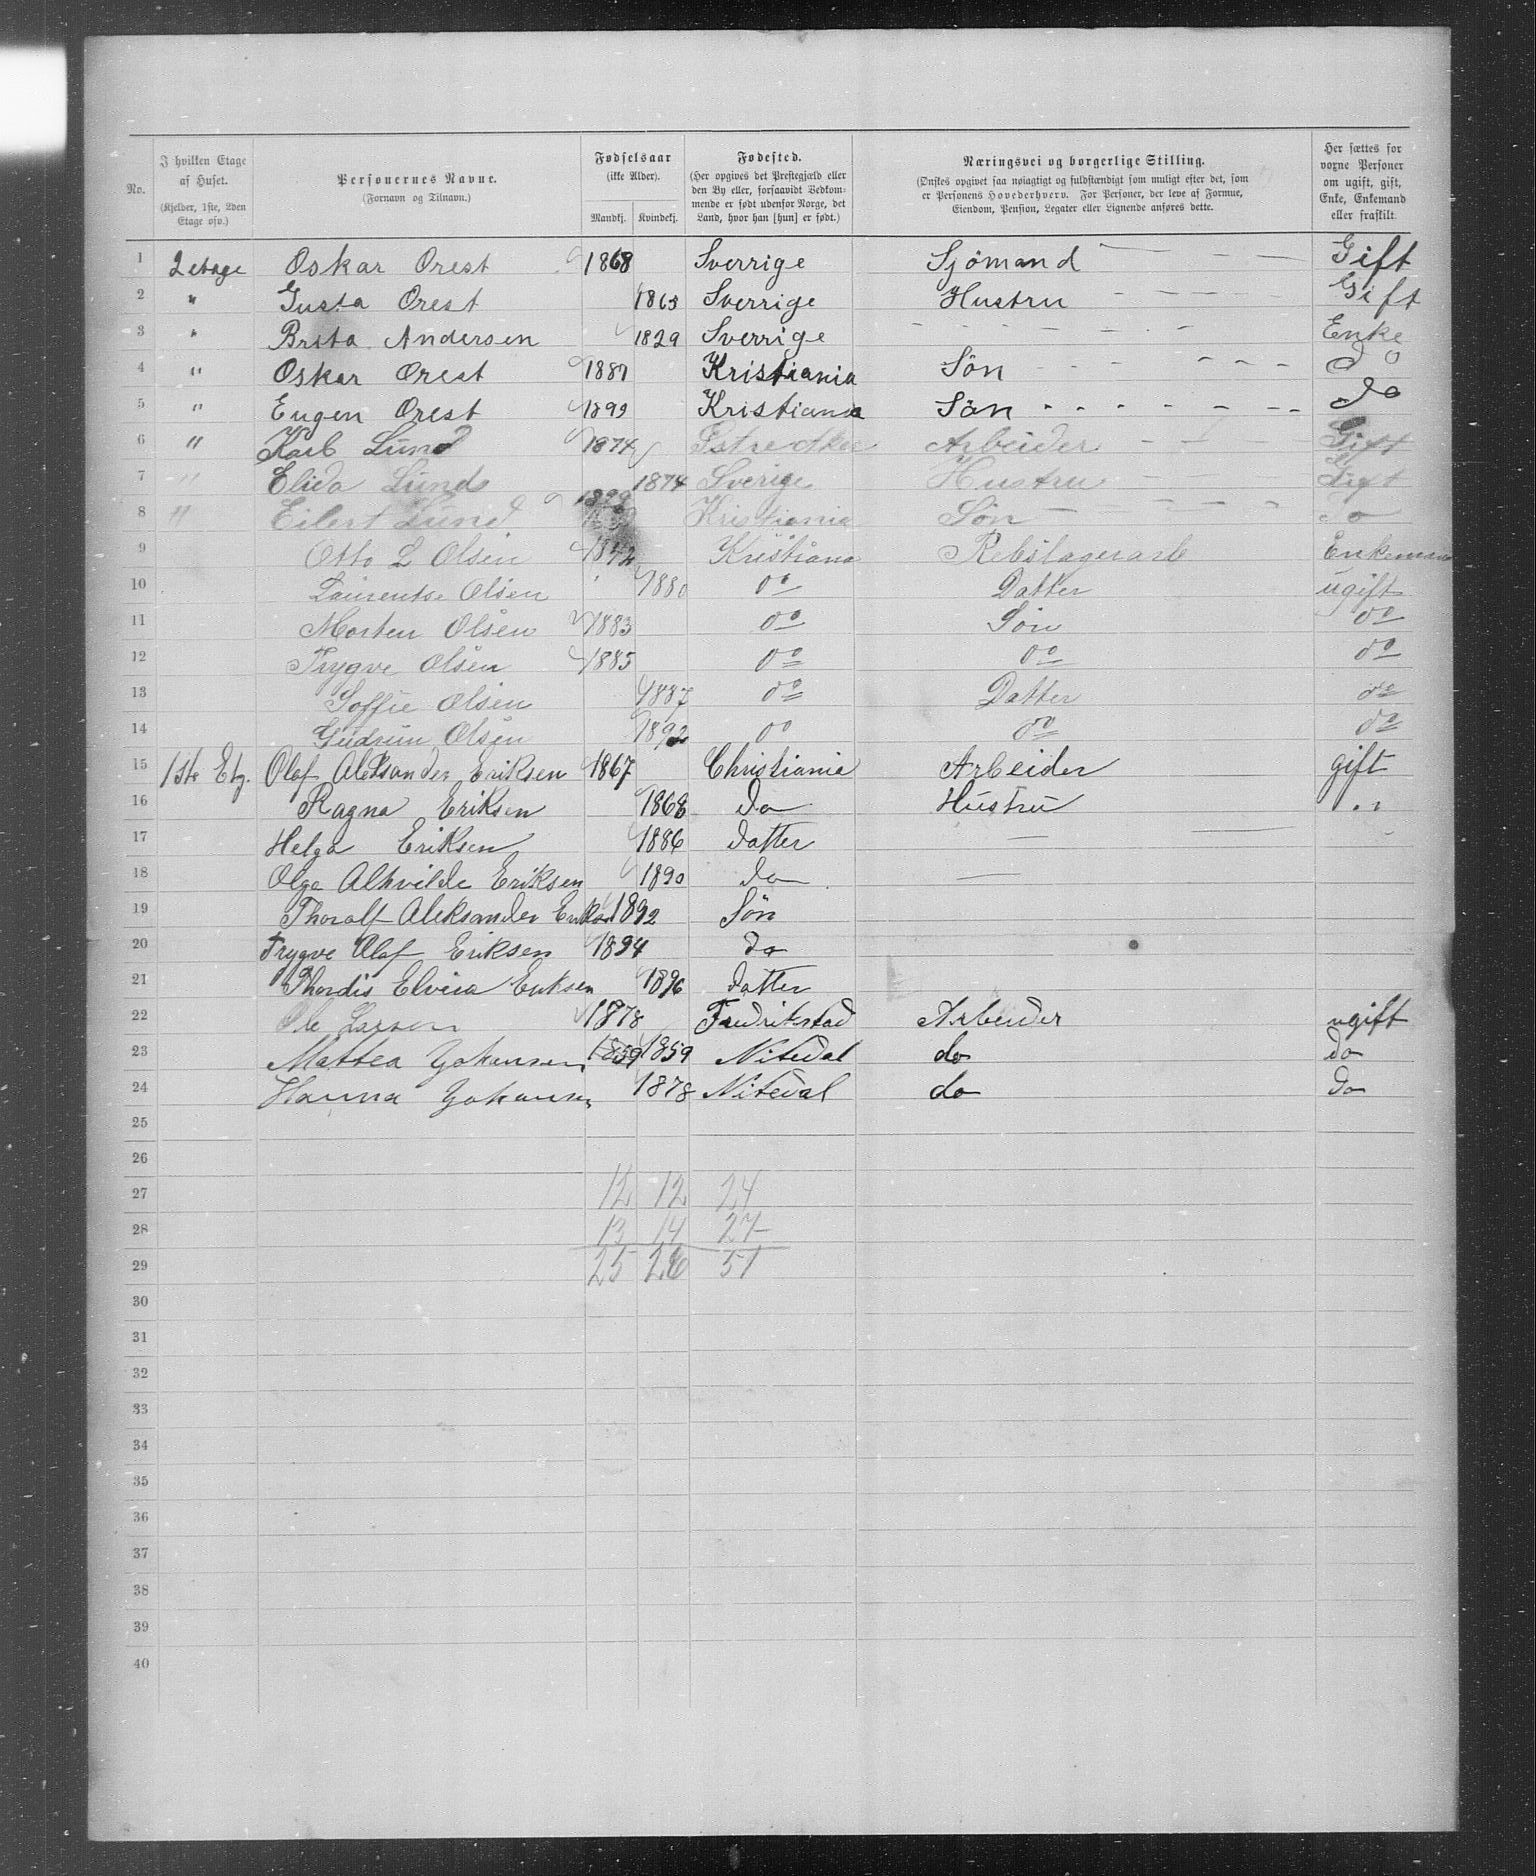 No. I hvilken Etage af Huset. (Kjelder, 1ste, 2den Etage osv.) Personernes Navne. (Fornavn og Tilnavn.) Fødselsaar (ikke Alder). Mandkj. Kvindekj. Fødested. (Her opgives det Prestegjæld eller den By eller, forsaavidt Vedkommende er født udenfor Norge, det Land, hvor han [hun] er født.) Næringsvei og borgerlige Stilling. (Ønskes opgivet saa nøiagtigt og fuldstændigt som muligt efter det, som er Personens Hovederhverv. For Personer, der leve af Formue, Eiendom, Pension, Legater eller Lignende anføres dette. Her sættes for voxne Personer om ugift, gift, Enke, Enkemand eller fraskilt.
1 2 etage Oskar Orest 1868 Sverrige Sjömand Gift
2 " Gusta Orest 1863 Sverrige Hustru Gift
3 " Brita Andersen 1829 Sverrige Enke
4 " Oskar Orest 1887 Kristiania Sön do
5 " Eugen Orest 1899 Kristiania Sön do
6 " Karl Lund 1874 Østre Aker Arbeider Gift
7 " Elida Lund 1874 Sverige Hustru Gift
8 " Eilert Lund 1899 Kristiania Søn do
9 Otto L Olsen 1842 Kristiana Rebslagerarb Enkeman
10 Laurentse Olsen 1880 do Datter ugift
11 Morten Olsen 1883 do Søn do
12 Trygve Olsen 1885 do do do
13 Soffie Olsen 1887 do Datter do
14 Gudrun Olsen 1892 do do do
15 1ste Etg. Olaf Aleksander Eriksen 1867 Christiania Arbeider gift
16 Ragna Eriksen 1868 do Hustru "
17 Helga Eriksen 1886 datter
18 Olga Alhvilde Eriksen 1890 do
19 Thoralf Aleksander Eriksen 1892 Sön
20 Trygve Olaf Eriksen 1894 do
21 Thordis Elvira Eriksen 1896 datter
22 Ole Larsen 1878 Fredrikstad Arbeider ugift
23 Mattea Johansen 1859 1859 Nitedal do do
24 Hanna Johansen 1878 Nitedal do do
25
26
27 12 12 24
28 13 14 27
29 25 26 51
30
31
32
33
34
35
36
37
38
39
40